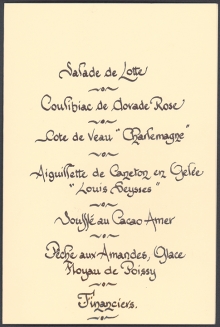 Salade de Lotte
Coulibiac de Dorade Rose
Cote de Veau "Charlemagne"
Aiguillette de Caneton en Gelée
"Louis Seysses"
Soufflé au Cacao Amer
Pêche aux Amandes, Glace
Noyau de Poissy
Financiers.